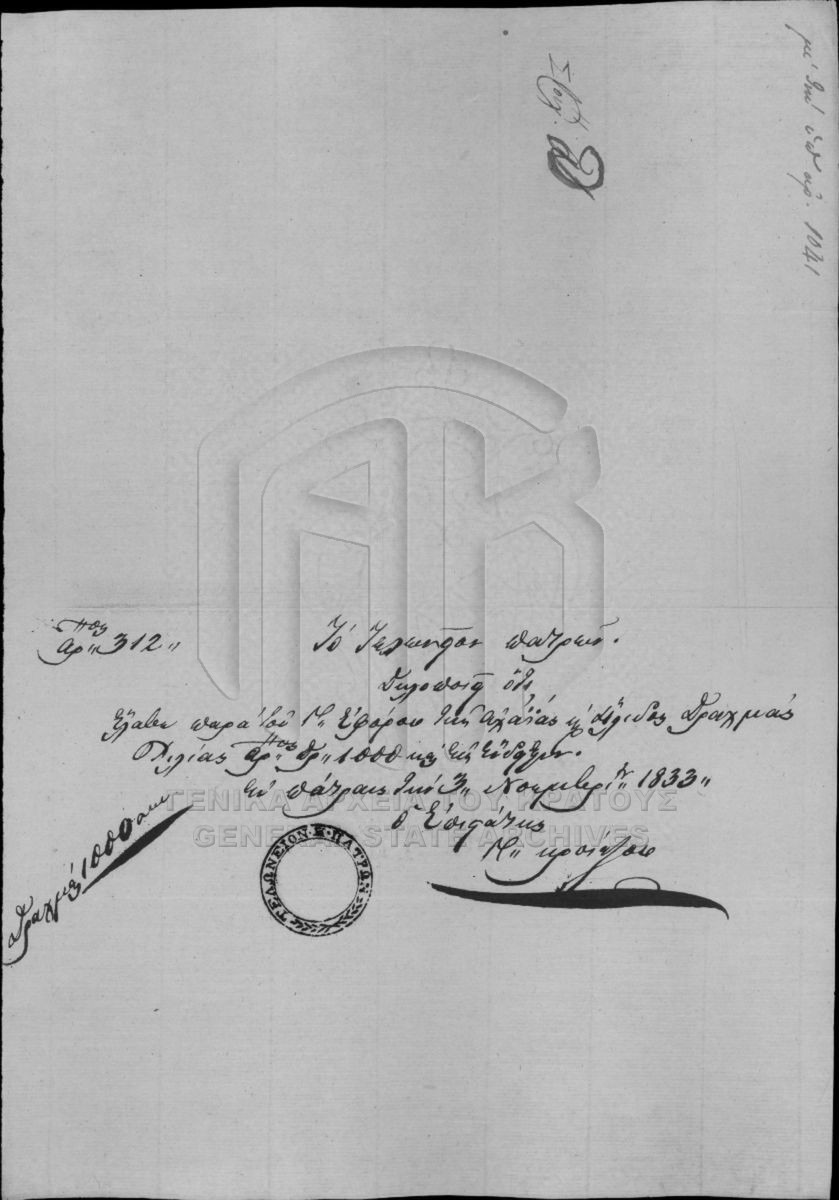 με την υπ αρ. 1041
Αρ. 312
Το Τελωνείον Πατρών.
Δηλοποιεί ότι
Έλαβεν παρά του Κ. Εφόρου της Αχαΐας κ Ήλιδος δραχμάς
χιλίας αρ. Δρ. 1000 και εις ένδειξιν.
Εν Πάτραις την 3 Νοεμβρίου 1833
Ο Επιστάτης
Δραχμαί 1000
ΤΕΛΩΝΕΙΟΝ ΠΑΤΡΩΝ
ΓΕΝΙΚΑ ΑΡΧΕΙΑ ΤΟΥ ΚΡΑΤΟΥΣ
GENERAL STATE ARCHIVES